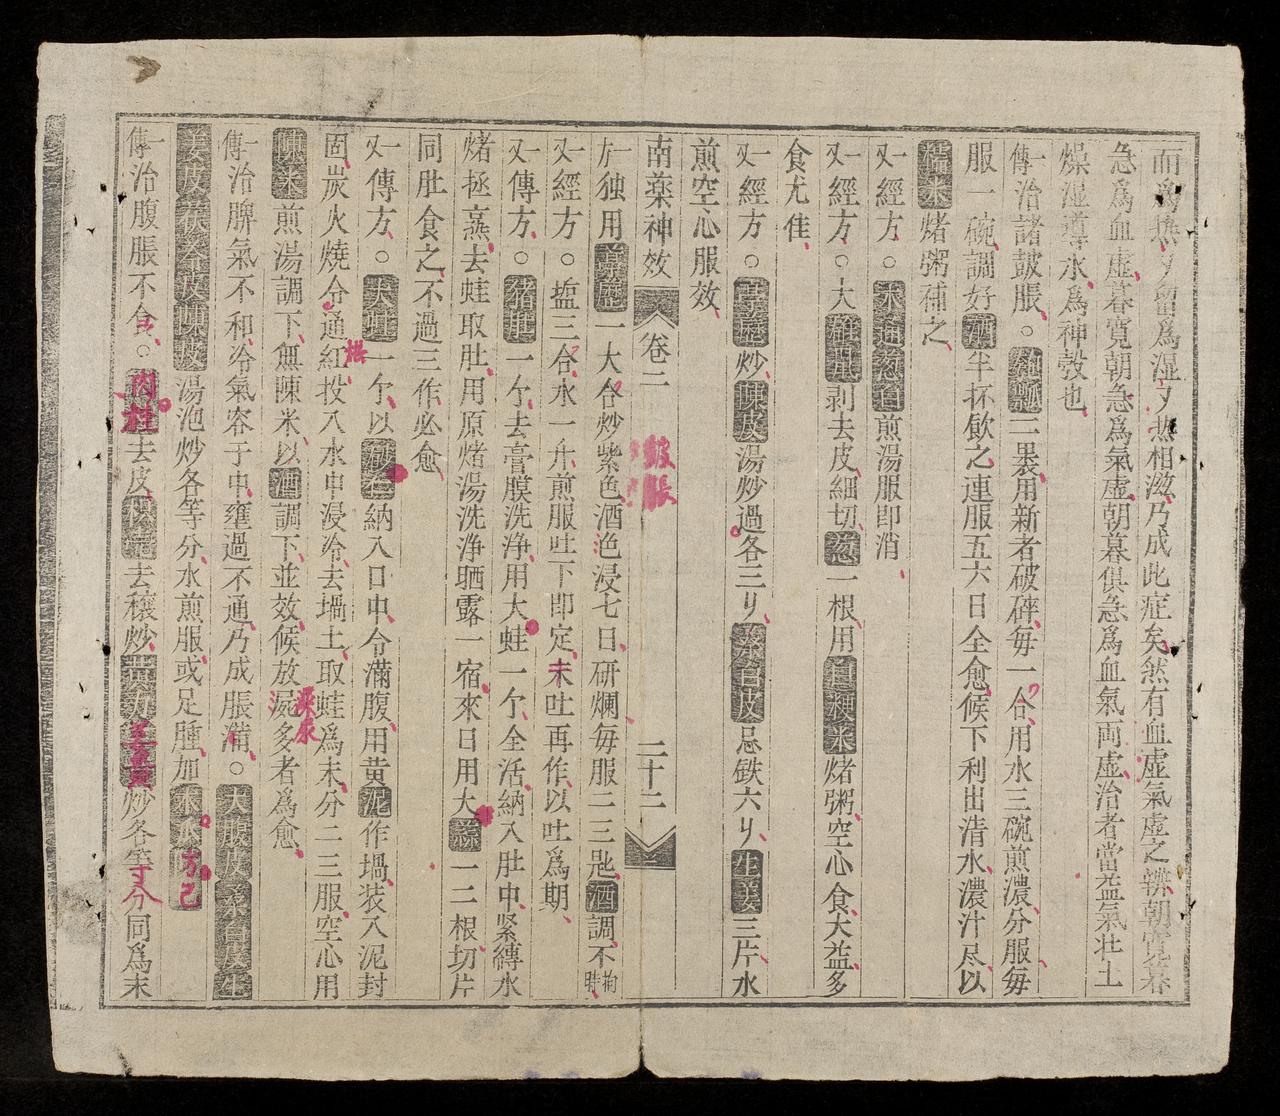 而為熱熱留為湿湿热相滋乃成此症矣然有血虚氣虚之辨朝寛暮
急為血虚暮寛朝急為氣虚朝暮俱急為血氣両虚治者當益氣壮土
燥湿導水為神彀也
一傳治諸皷脹○二裹用新者破碎每一合用水三碗煎濃分服每
服一碗調好酒半抔飲之連服五六日全愈候下利出清水濃汁尽以
糯米㷖粥補之
又一經方○木通葱白煎湯服即消
又一經方○大雄鴨剥去皮細切葱一根用粳米㷖粥空心食大益多
食尤佳
又一經方○葶藶炒陳皮湯炒過各三刂桑白皮忌鉄六刂生姜三片水
煎空心服效
南薬神效 卷二 蝦脹 二十二
一方独用葶藶一大合炒紫色酒浥浸七日研爛每服二三匙酒調不拘時
又一經方○塩三合水一升煎服吐下即定未吐再作以吐爲期
又一傳方○猪肚一个去膏膜洗淨用大蛙一个全活納入肚中紧縛水
㷖拯熹去蛙取肚用原㷖湯洗浄晒露一宿來日用大蒜一二根切片
同肚食之不過三作必愈
又一傳方○大蛙一个以砂仁納入口中令滿腹用黄泥作堝装入泥封
固炭火燒令通紅投入水中浸冷去堝土取蛙爲末分二三服空心用
陳米煎湯調下無陳米以酒調下並效候放屍多者爲愈
一傳治脾氣不和冷氣容于中壅過不通乃成脹滿○大腹皮桑白皮生
姜皮茯苓皮陳皮湯泡炒各等分水煎服或足腫加木瓜防己
一傳治腹脹不食○肉桂去皮去穰炒炒各等分同爲末